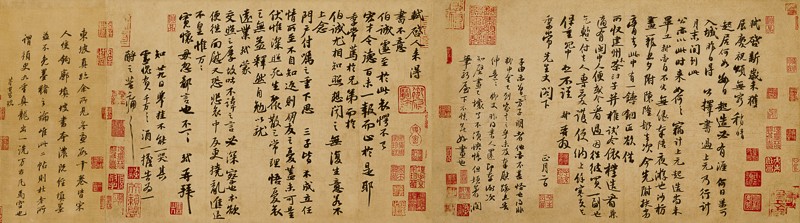 軾啟新歲未獲
展慶祝頌無窮稍晴
起居何如數日起造必有涯何日果可
入城昨日得公擇書過上元乃行計
月末間到此
公亦以此時來如何竊計上元起造尚未
畢工軾亦自不出無緣奉陪夜遊也沙枋
畫籠旦夕附陳隆船去次今先附扶劣
膏去此中有一鑄銅匠欲借
所收建州木茶臼子并椎試令依樣造看兼
適有閩中人便或令看過因往彼買一副也乞
暫付去人專愛護便納上餘寒更乞
保重冗中恕不謹軾再拜
季常先生丈閣下
正月二日
子由亦曾言方子明者他亦不甚怪也得非柳
中舍已到家言之乎未及奉慰疏且告
伸意伸意柳丈昨得書人還即奉謝次
知壁畫已壞了不須怏悵但頓著潤
筆新屋下不愁無好畫也
軾啟人來得
書不意
伯誠遽至於此哀愕不已
宏才令德百未一報而止於是耶
季常篤於兄弟而於
伯誠尤相知照想聞之無復生意若不
上念
門戶付囑之重下思三子皆不成立任
情所至不自知返則朋友之憂蓋未可量
伏惟深照死生聚散之常理悟憂哀
之無益釋然自勉以就
遠業軾蒙
交照之厚故吐不諱之言必深察也本欲
便往面慰又恐悲哀中反更撓亂進退
不皇惟萬萬
寬懷毋忽鄙言也不一一軾再拜
知廿九日舉掛不能一哭其
靈愧負千萬千萬酒一擔告為一
酹之苦痛苦痛
東坡真跡余所見無慮數十卷皆宋
人雙鉤廓填坡書本濃既經填墨
蓋不免墨豬之論唯此二帖則杜老所
謂須臾九重真龍出一洗萬古凡馬空也
董其昌題